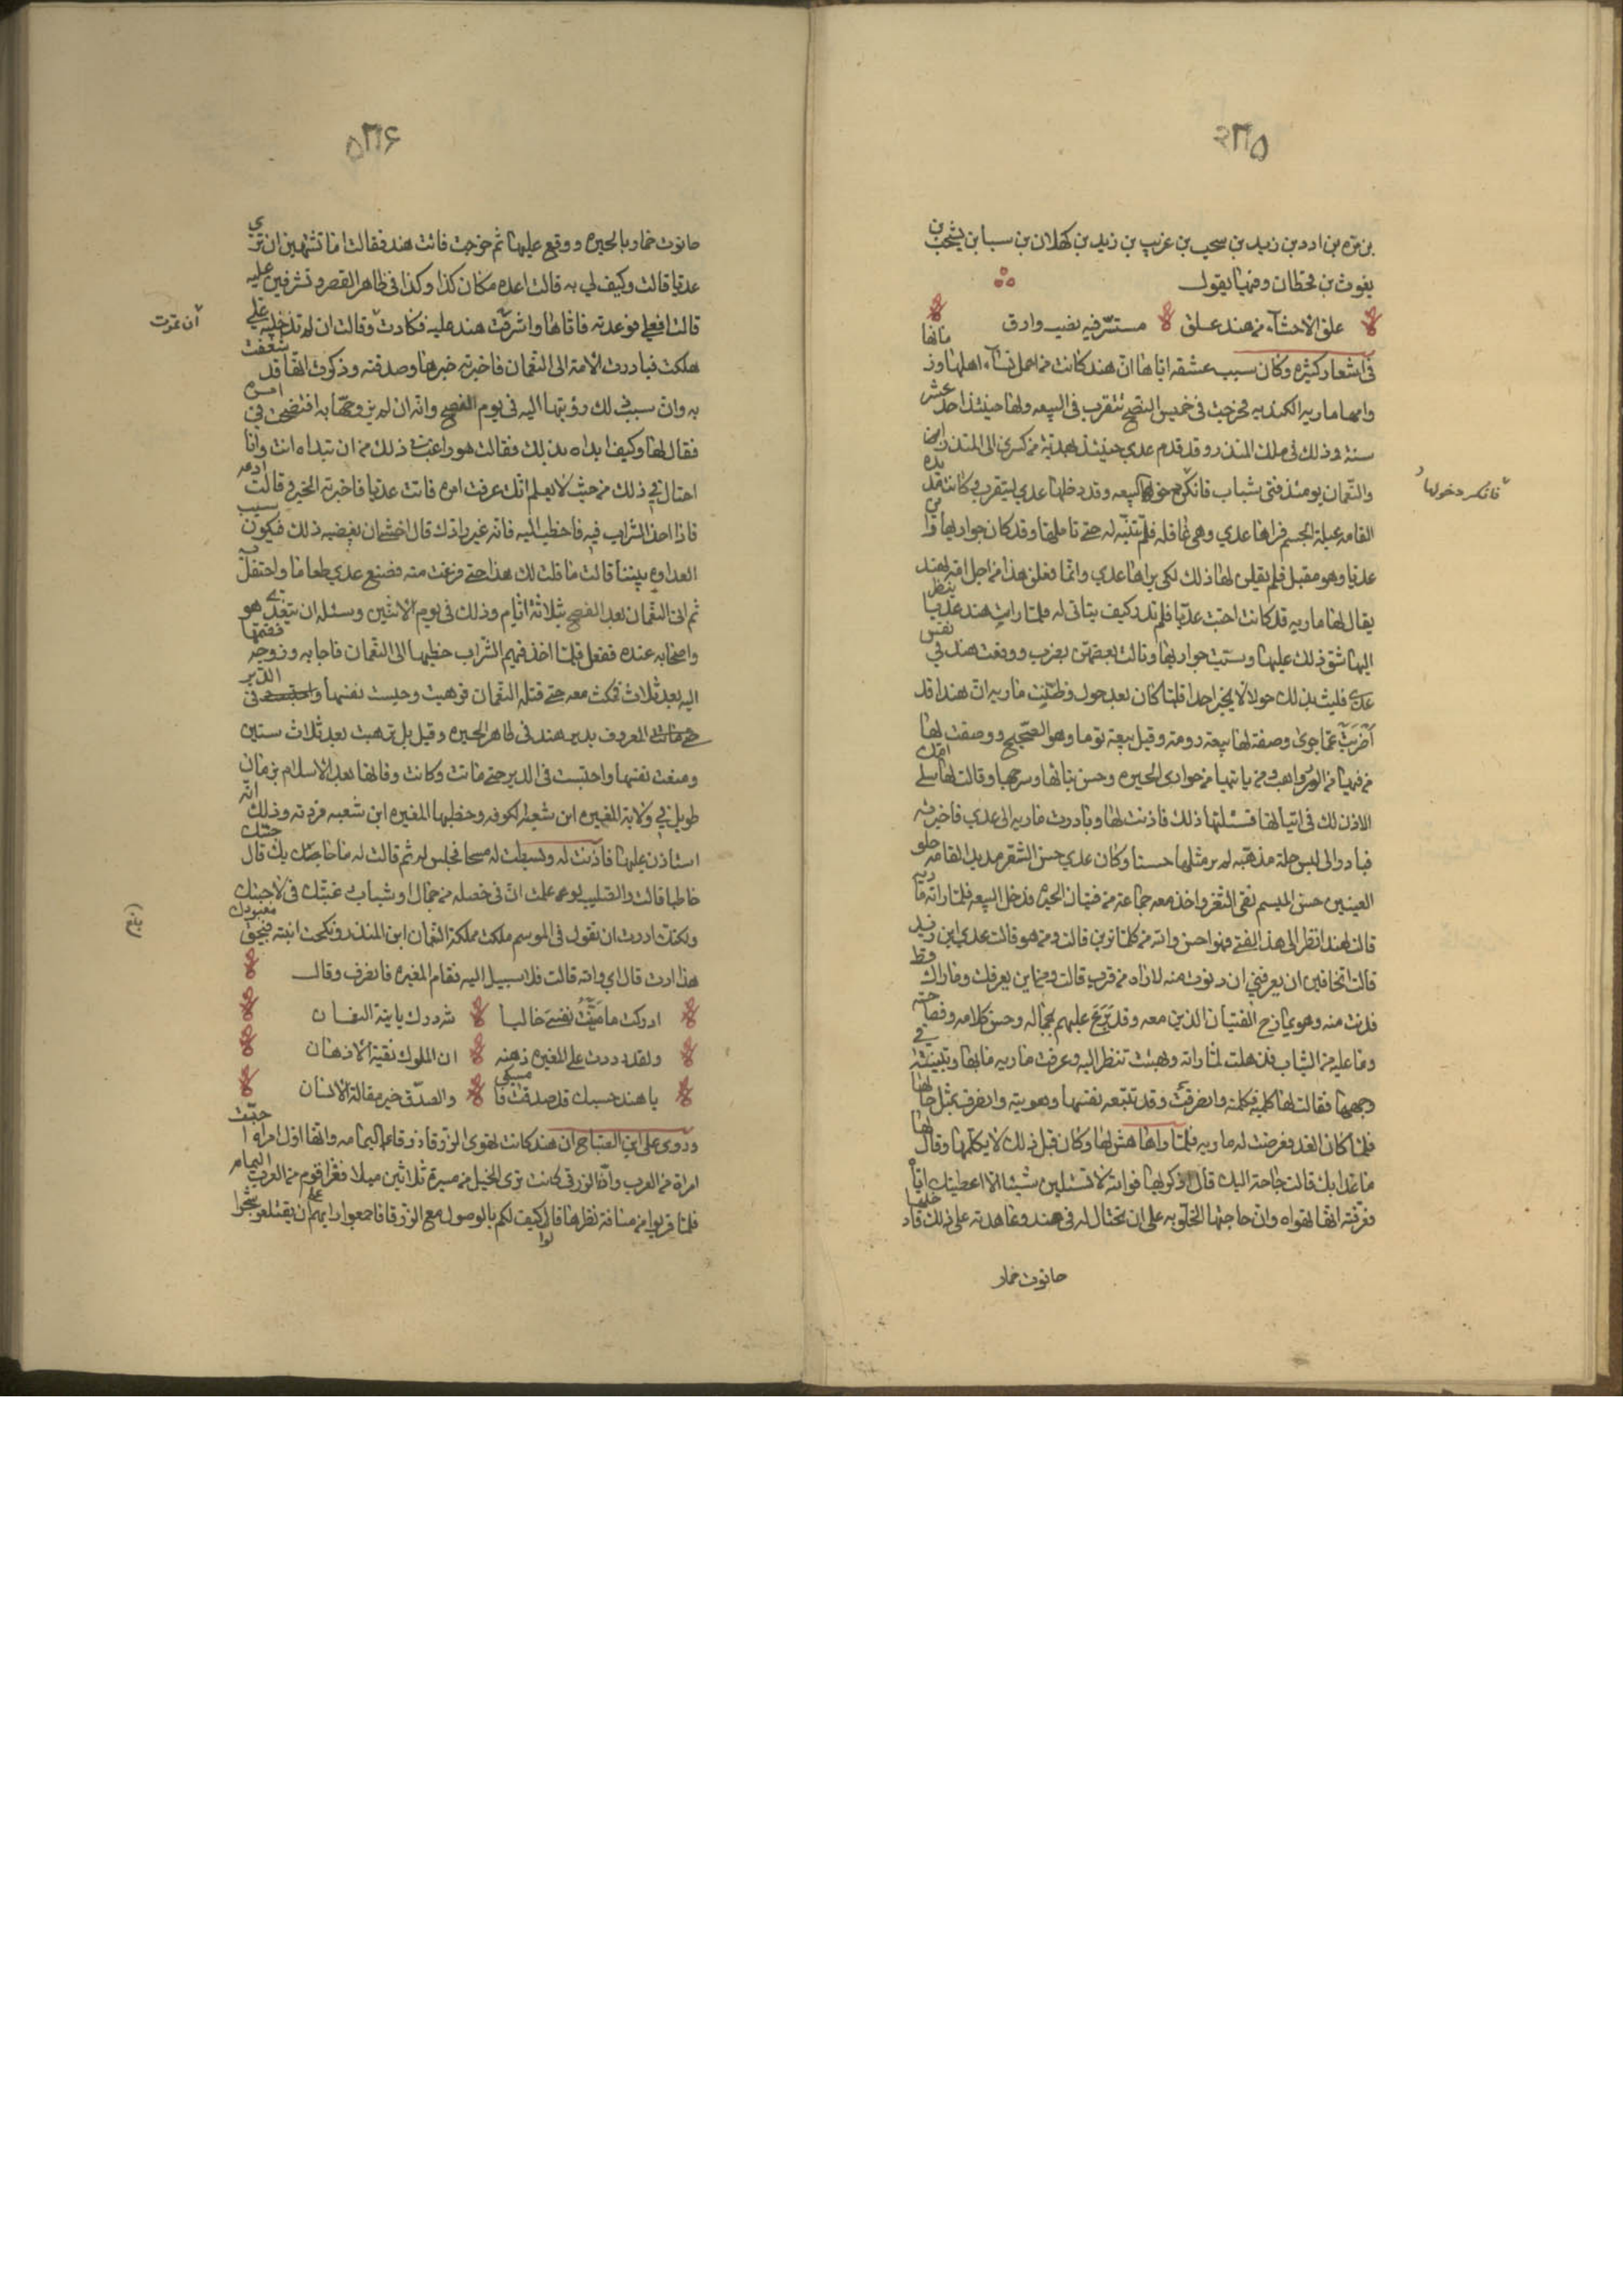 ٥٣٥
بن مره بن ادد بن زيد بن يشجب بن عريب بن زيد بن كهلان بن سبا بن يشجب بن
يعرب بن قحطان وفيها يقول
علق الاحشاء من هند علق مستسر فيه نصب وارق
فى اشعار كثيره وكان سبب عشقه اياها ان هند كانت من اجمل نساء اهلها وزمانها
وامها ماريه الكنديه فخرجت فى خميس الفصح تتقرب فى البيعه ولها حينئذ احد عشر
سنة وذلك فى ملك المنذر وقد قدم عدي حينئذ بهدية من كسرى الى المنذر
والنعمان يومئذ فتى شباب وقد دخلها عدي ليتقرب وكانت مديده
القامه عبلة الجسم فراها عدي وهى غافله فلم تنتبه له حتى تاملها وقد كان جواريها راين
عديا وهو مقبل فلم يقلن لها ذلك لكى يراها عدي وانما فعلن هذا من اجل امة لهند
يقال لها ماريه قد كانت احبت عديا فلم تدر كيف يتاتى له فلما رات هند عديا ينظر
اليها شق ذلك عليها وسبت جواريها ونالت بعضهن بضرب ووقعت هند فى نفس
عدي فلبث بذلك حولا لا يخبر احدا فلما كان بعد حول وظنت ماريه ان هندا قد
اضربت عما جرى وصفت لها بيعة دومه وقيل بيعة توما وهو الصحيح ووصفت لها
من فيها من الرواهب ومن ياتيها من جوارى الحيره وحسن بنائها وسرجها وقالت لها سلى امك
الاذن لك فى اتيانها فسئلتها ذلك فاذنت لها وبادرت ماريه الى عدي فاخبرته
فبادر الى لبس حلة مذهبه لم ير مثلها حسنا وكان عدي حسن الشعر مديد القامه حلو
العينين حسن المبسم نقى الثغر واخذ معه جماعة من فتيان الحيره فدخل البيعه فلما راته ماريه
قالت لهند انظرى الى هذا الفتى فهو احسن والله من كلما ترين قالت ومن هو قالت عدي ابن زيد
قالت اتخافين ان يعرفنى ان دنوت منه لاراه من قرب قالت ومن اين يعرفك وما راك قط
فدنت منه وهو يمازح الفتيان الذين معه وقد برع عليهم بجماله وحسن كلامه وفصاحته
وما عليه من الثياب فذهلت لما راته وبهتت تنظر اليه وعرفت ماريه ما بها وتبينته فى
وجهها فقالت لها كلميه فكلمته وانصرفت وقد تبعه نفسها وهويته وانصرف بمثل حالها
فلما كان الغد تعرضت له ماريه فلما راها هش لها وكان قبل ذلك لا يكلمها وقال لها
ما غدا بك قالت حاجة اليك قال اذكريها فوالله لا تسئلين شيئا الا اعطيتك اياه
فعرفته انها تهواه وان حاجتها الخلو به على ان تحتال له فى هند وعاهدته على ذلك فادخلها
حانوت خمار
فانكر دخولها
٥٣٦
حانوت خمار بالحيره ووقع عليها ثم خرجت فاتت هند فقالت اما تشتهين ان ترى
عديا قالت وكيف لي به قالت اعده مكان كذا وكذا فى ظاهر القصر وتشرفين عليه
قالت افعلى فوعدته فاتاها واشرفت هند عليه فكادت وقالت ان لم تدخليه على
هلكت فبادرت الامة الى النعمان فاخبرته خبرها وصدقته وذكرت انها قد شغفت
به وان سبب ذلك رؤيتها اليه فى يوم الفصح وانه ان لم يزوجها به افتضحت فى امره
فقال لها وكيف ابداه بذلك فقالت هو ارغب فى ذلك من ان تبداه انت وانا
احتال فى ذلك من حيث لا يعلم انك عرفت امره فاتت عديا فاخبرته الخبر وقالت ادعه
فاذا اخذ الشراب فيه فاخطب اليه فانه غير رادك قال اخشى ان يغضبه ذلك فيكون سبب
العداوه بيننا قالت ما قلت لك هذا حتى فرغت منه فصنع عدي طعاما واحتفل
ثم اتى النعمان بعد الفصح بثلاثة ايام وذلك فى يوم الاثنين وسئله ان يتغدى هو
واصحابه عنده ففعل فلما اخذ فيهم الشراب خطبها الى النعمان فاجابه وزوجه فضمها
اليه بعد ثلاث فمكثت معه حتى قتله النعمان فترهبت وحبست نفسها فى الدير
المعروف بدير هند فى ظاهر الحيره وقيل بل ترهبت بعد ثلاث سنين
ومنعت نفسها واحتبست فى الدير حتى ماتت وكانت وفاتها بعد الاسلام بزمان
طويل فى ولاية المغيره ابن شعبه الكوفه وخطبها المغيره ابن شعبه فردته وذلك انه
استاذن عليها فاذنت له وبسطت له مسحا فجلس له ثم قالت له ما حاجتك قال جئتك
خاطبا قالت والصليب لو علمت ان فى خصله من جمال او شباب رغبتك فى لاجبتك
ولكنك اردت ان تقول فى الموسم ملكت مملكة النعمان ابن المنذر ونكحت ابنته فبحق معبودك
هذا اردت قال اي والله قالت فلا سبيل اليه فقام المغيره فانصرف وقال
ادركت ما منيت نفسى خاليا لله درك يا ابنة النعمان
ولقد رددت على المغيره ذهنه ان الملوك نقية الاذهان
يا هند حسبك قد صدقت فامسكى والصدق خير مقالة الانسان
وروى على ابن الصباح ان هند كانت تهوى الزرقا زرقاء اليمامه وانها اول امراه احبت
امراة من العرب وان الزرقى كانت ترى الخيل من مسيرة ثلاثين ميلا فغزا قوم من العرب اليمامه
فلما قربوا من مسافة نظرها قالوا كيف لكم بالوصول مع الزرقا فاجمعوا رايهم على ان يقتلعوا شجرا
ان تموت